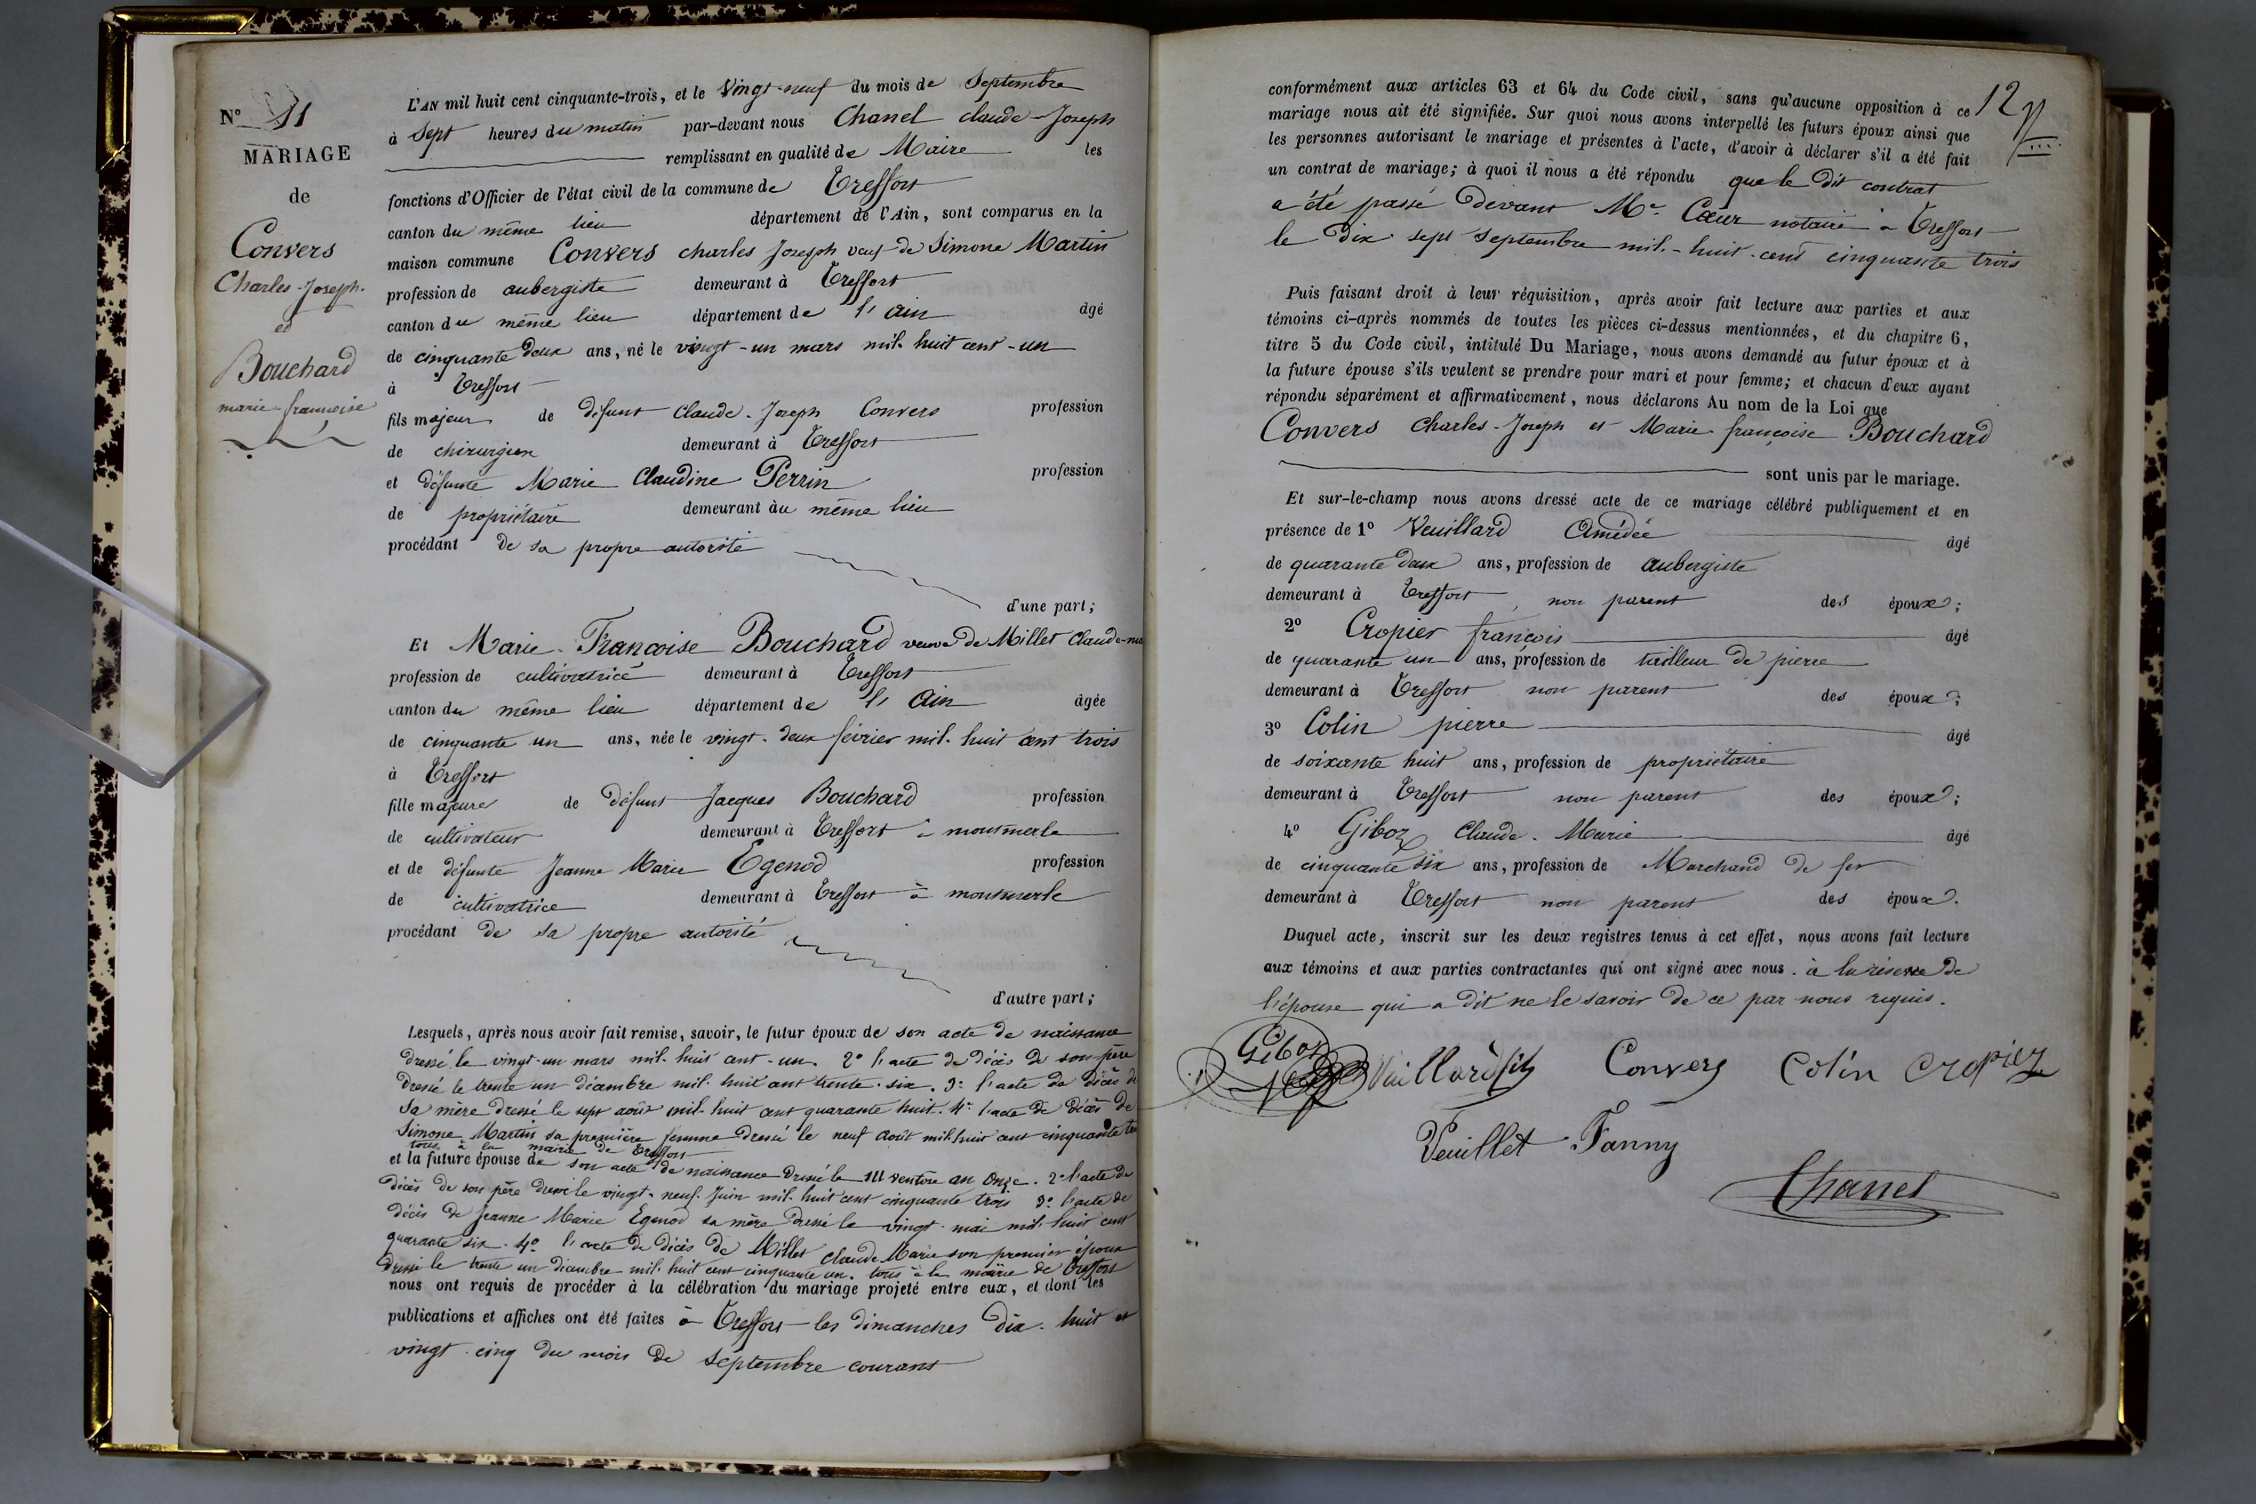 N° 11
MARIAGE
de
Convers
Charles-Joseph.
et
Bouchard
marie-francoise
L'AN mil huit cent cinquante-trois, et le vingt-neuf du mois de Septembre
à Sept heures du matin par-devant nous Chanel claude-Joseph
remplissant en qualité de Maire les
fonctions d'Officier de l'état civil de la commune de Treffort
canton du même lieu département de l'Ain, sont comparus en la
maison commune Convers charles Joseph veuf de Simone Martin
profession de aubergiste demeurant à Treffort
canton du même lieu département de l'ain âgé
de cinquante deux ans, né le vingt-un mars mil huit cent-un
à Treffort
fils majeur de défunt Claude-Joseph Convers profession
de chirurgien demeurant à Treffort
et défunte Marie Claudine Perrin profession
de propriétaire demeurant au même lieu
procédant de sa propre autorité
d'une part;
Et Marie-Françoise Bouchard veuve de Millet Claude-ma
profession de cultivatrice demeurant à Treffort
canton du même lieu département de l'ain âgée
de cinquante un ans, née le vingt-deux février mil-huit cent trois
à Treffort
fille majeure de défunt Jacques Bouchard profession
de cultivateur demeurant à Treffort à montmerle
et de défunte Jeanne Marie Egenod profession
de cultivatrice demeurant à Treffort à montmerle
procédant de sa propre autorité
d'autre part;
Lesquels, après nous avoir fait remise, savoir, le futur époux de son acte de naissance
dressé le vingt-un mars mil-huit cent-un. 2° l'acte de décès de son père
dressé le trente un décembre mil-huit cent trente-six. 3° l'acte de décès de
sa mère dressé le sept août mil-huit cent quarante huit. 4° l'acte de décès de
Simone Martin sa première femme dressé le neuf août mil huit cent cinquante
tous à la mairie de Treffort
et la future épouse de son acte de naissance dressé le III ventôse an onze. 2° l'acte de
décès de son père dressé le vingt-neuf Juin mil-huit cent cinquante trois 3° l'acte de
décès de Jeanne Marie Egenod sa mère dressé le vingt mai mil huit cent
quarante six. 4° l'acte de décès de Millet claude Marie son premier époux
dressé le trente un décembre mil-huit cent cinquante un. tous à la mairie de Treffort
nous ont requis de procéder à la célébration du mariage projeté entre eux, et dont les
publications et affiches ont été faites à Treffort les dimanches dix-huit et
vingt-cinq du mois de septembre courant
12
conformément aux articles 63 et 64 du Code civil, sans qu'aucune opposition à ce
mariage nous ait été signifiée. Sur quoi nous avons interpellé les futurs époux ainsi que
les personnes autorisant le mariage et présentes à l'acte, d'avoir à déclarer s'il a été fait
un contrat de mariage; à quoi il nous a été répondu que le dit contrat
a été passé devant Me. Cœur notaire à Treffort
le dix-sept septembre mil-huit-cent cinquante trois
Puis faisant droit à leur réquisition, après avoir fait lecture aux parties et aux
témoins ci-après nommés de toutes les pièces ci-dessus mentionnées, et du chapitre 6,
titre 5 du Code civil, intitulé Du Mariage, nous avons demandé au futur époux et à
la future épouse s'ils veulent se prendre pour mari et pour femme; et chacun d'eux ayant
répondu séparément et affirmativement, nous déclarons Au nom de la Loi que
Convers Charles-Joseph et Marie-françoise Bouchard
sont unis par le mariage.
Et sur-le-champ nous avons dressé acte de ce mariage célébré publiquement et en
présence de 1° Veuillard Amédée âgé
de quarante deux ans, profession de aubergiste
demeurant à Treffort, non parent des époux;
2° Cropier françois âgé
de quarante un ans, profession de tailleur de pierre
demeurant à Treffort non parent des époux;
3° Colin pierre âgé
de soixante huit ans, profession de propriétaire
demeurant à Treffort non parent des époux;
4° Giboz Claude-Marie âgé
de cinquante six ans, profession de Marchand de fer
demeurant à Treffort non parent des époux.
Duquel acte, inscrit sur les deux registres tenus à cet effet, nous avons fait lecture
aux témoins et aux parties contractantes qui ont signé avec nous. à la réserve de
l'épouse qui a dit ne le savoir de ce par nous requis.
Giboz Vuillard fils Convers Colin Cropier
Veuillet Fanny
Chanel